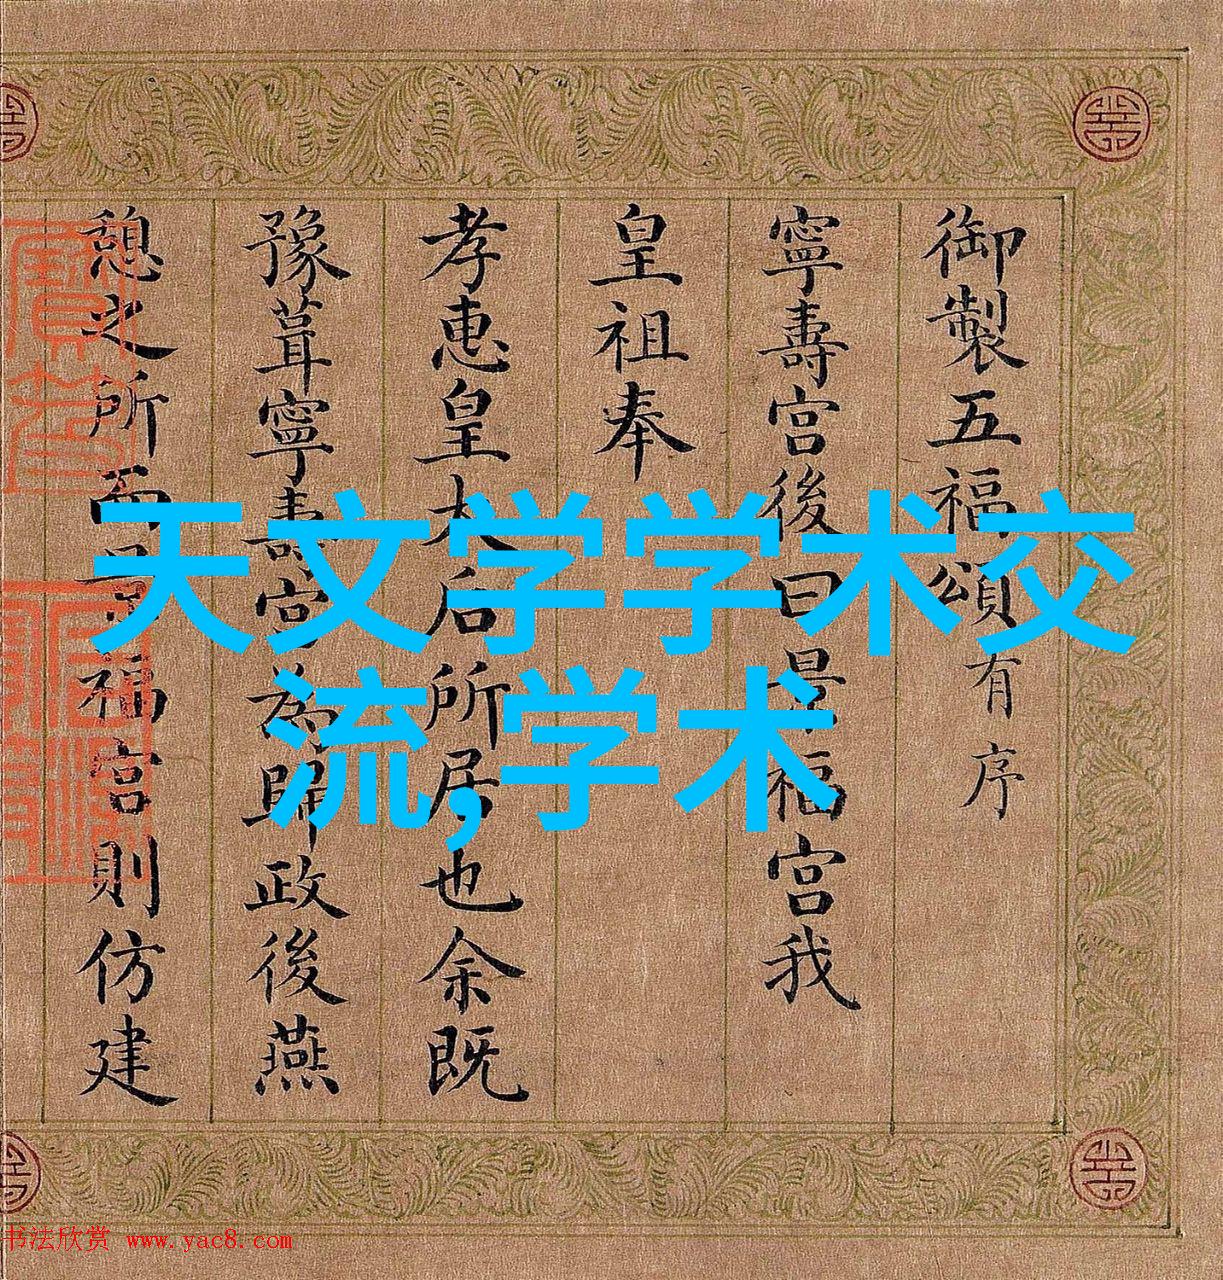 御製五福頌有序
寧壽宮後曰景福宮我
皇祖奉
孝惠皇太后所居也余既
豫葺寧壽宮為歸政後燕
憩之所而景福宮則仿建
天文学学术交
流,学术
书法欣赏 www.yac8.com